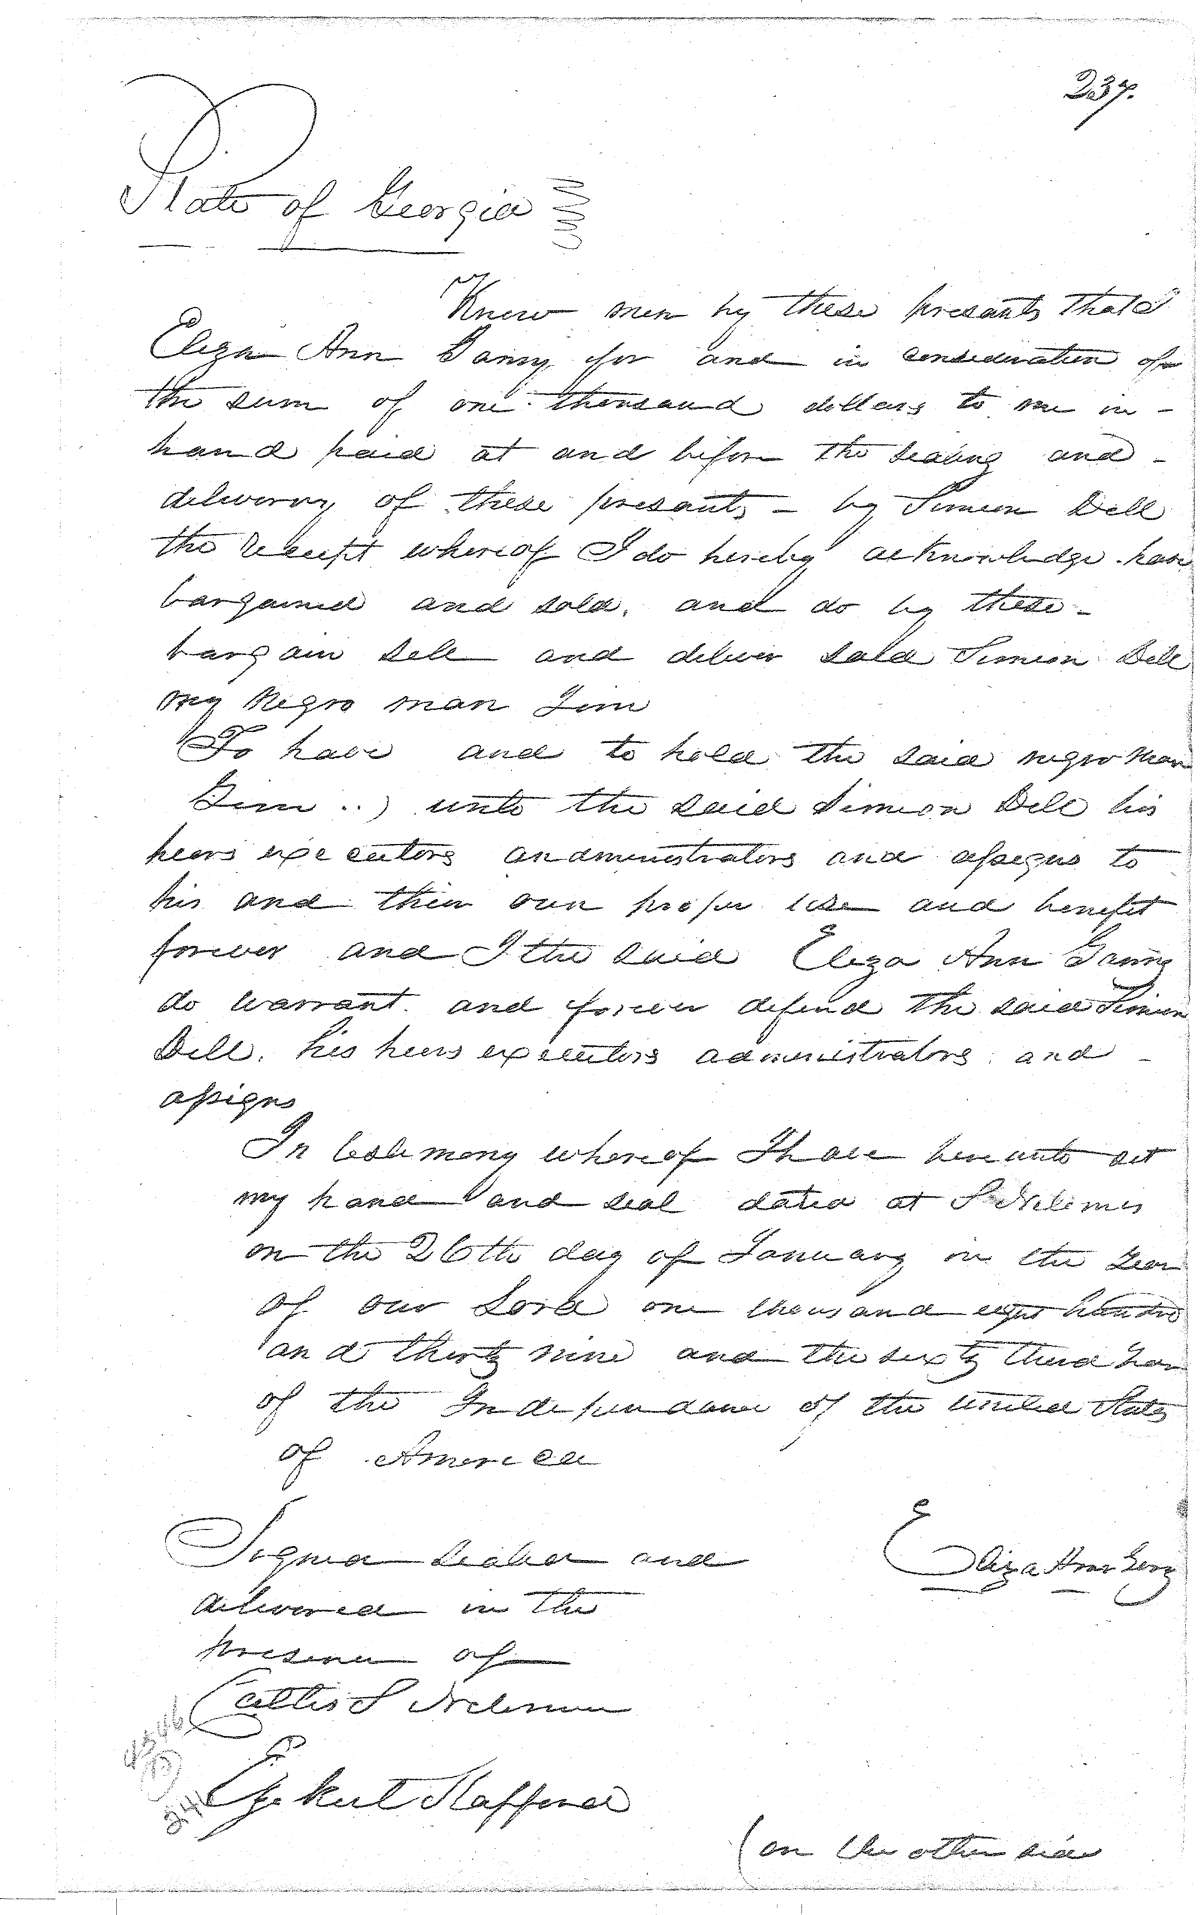 237.
State of Georgia
Know men by these presants that I
Eliza Ann for and in consideration of
the sum of one thousand dollars to me in -
hand paid at and before the sealing and -
delivery of these presants - by Simeon Dell
the receipt whereof I do hereby acknowledge have
bargained and sold, and do by these -
bargain sell and deliver said Simeon Dell
my Negro man Jim
To have and to hold the said negro man
Jim ..) unto the said Simeon Dell his
heers executors andministrators and assigns to
his and their own proper use and benefit
forever and I the said Eliza Ann
do warrant and forever defend the said Simeon
Dell, his heers executors administrators and -
assigns
In testimony whereof I have hereunto set
my hand and seal dated at
on the 26th day of January in the year
of our Lord one thousand eight hundred
and thirty nine and the sixty third year
of the Independance of the United States
of America
Eliza Ann
Signed sealed and
delivered in the
presence of
S
(on the other side